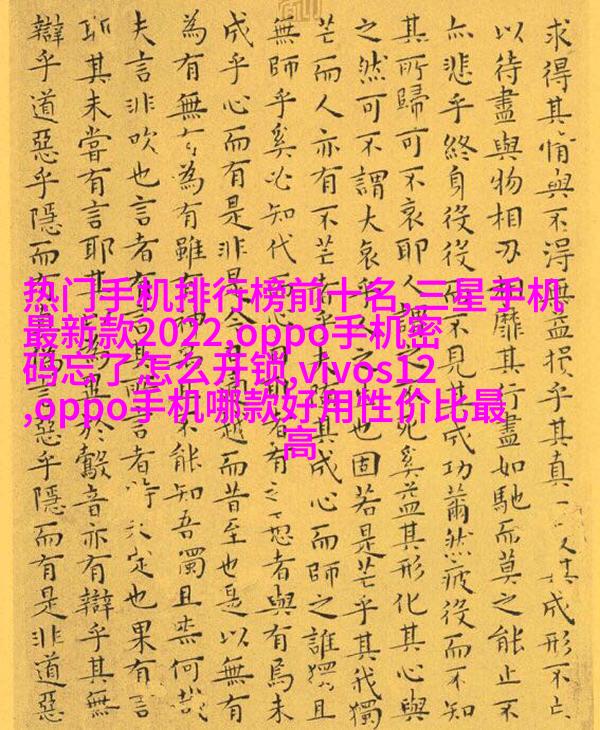 求得其情與不得無益損乎其真其成形不亡
以待盡與物相刃相靡其行盡如馳而莫之能止不
亦悲乎終身役役而不見其成功薾然疲役而不知
其所歸可不哀耶人謂之不死奚益其形化其心與
之然可不謂大哀乎人之生也固若是芒乎其我獨
芒而人亦有不芒者乎其成心而師之誰獨且
無師乎奚必知代而者有之愚者與有焉未
成乎心而有是非是今越而昔至也是以無有
為有無有為有雖有神不能知吾獨且柰何哉
夫言非吹也言者有言者特未定也果有言
耶其未嘗有言耶其為異於鷇音亦有辯乎其無
辯乎道惡乎隱而有偽言惡乎隱而有是非道惡
热门手机排行榜前十名,三星手机
最新款2022,oppo手机密
码忘了怎么开锁,vivos12
,oppo手机哪款好用性价比最
高